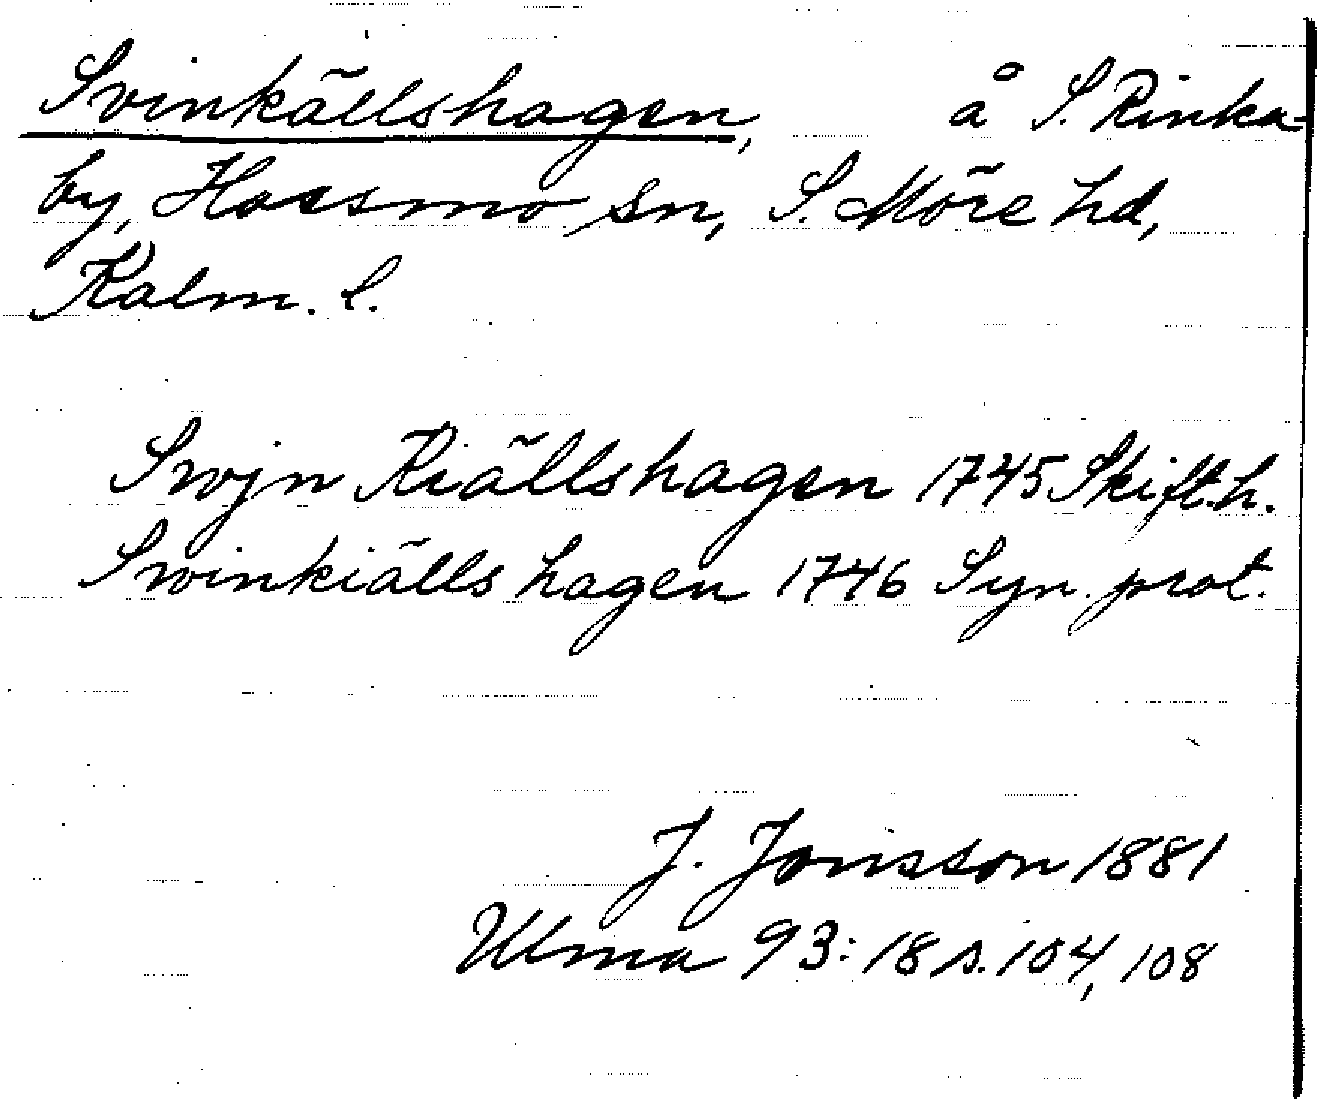 Svinkällshagen, å S. Rinka-
by, Hossmo sn, S. Möre hd,
Kalm. l.
Swjn Kiällshagen 1745 Skift.h.
Swinkiälls hagen 1746 Syn. prot.
J. Jonsson 1881
Ulma 93:18 s. 104, 108